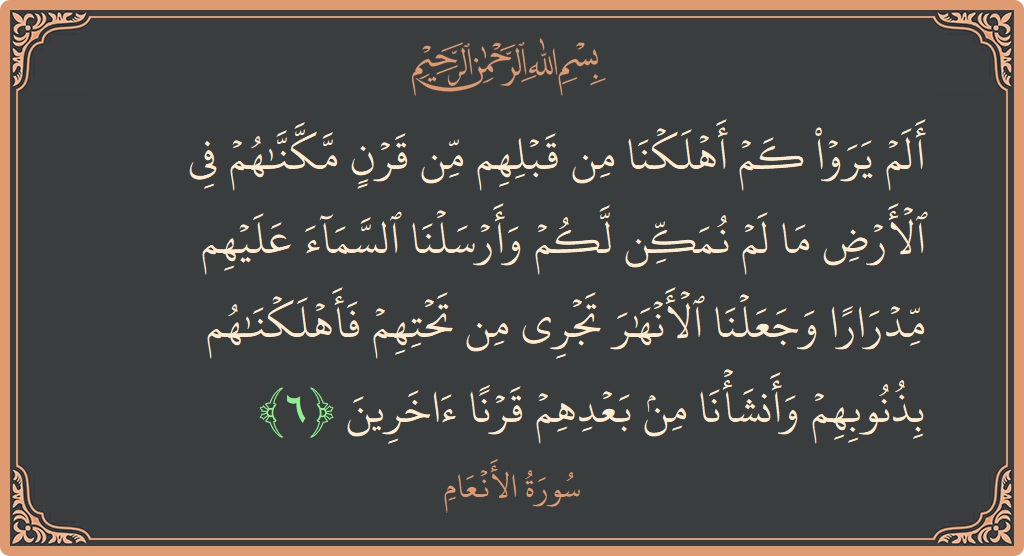 بِسْمِ اللهِ الرَّحْمٰنِ الرَّحِيْمِ
أَلَمۡ يَرَوۡاْ كَمۡ أَهۡلَكۡنَا مِن قَبۡلِهِم مِّن قَرۡنٖ مَّكَّنَّٰهُمۡ فِي
ٱلۡأَرۡضِ مَا لَمۡ نُمَكِّن لَّكُمۡ وَأَرۡسَلۡنَا ٱلسَّمَآءَ عَلَيۡهِم
مِّدۡرَارٗا وَجَعَلۡنَا ٱلۡأَنۡهَٰرَ تَجۡرِي مِن تَحۡتِهِمۡ فَأَهۡلَكۡنَٰهُم
بِذُنُوبِهِمۡ وَأَنشَأۡنَا مِنۢ بَعۡدِهِمۡ قَرۡنًا ءَاخَرِينَ ﴿٦﴾
سُورَةُ الأَنۡعَامِ